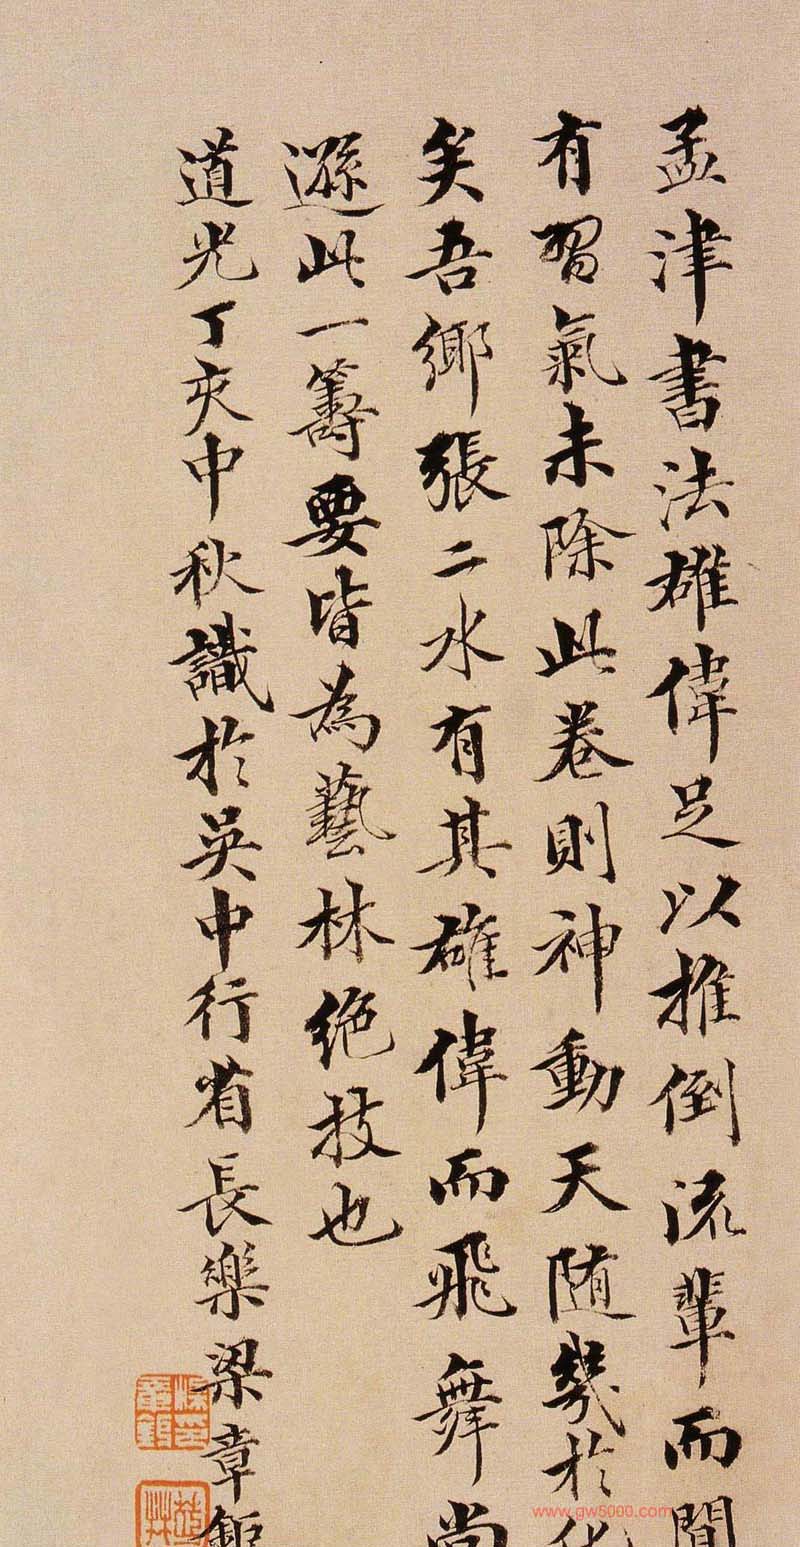 孟津書法雄偉足以推倒流輩而間
有習氣未除此卷則神動天随幾於化
矣吾鄉張二水有其雄偉而飛舞尚
遜此一籌要皆為藝林絕技也
道光丁亥中秋識於吳中行省長樂梁章鉅
www.gw5000.com